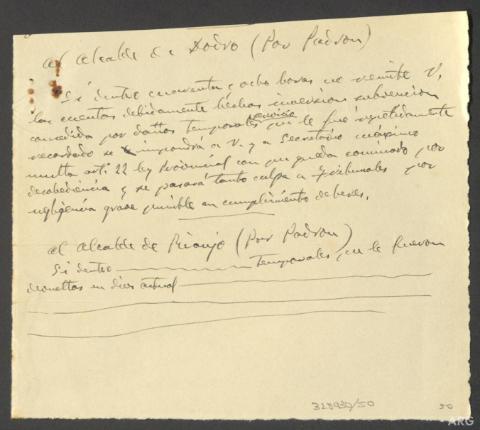 al Alcalde de Dodro (Por Padron)
Si dentro cuarenta y ocho horas no remite V.
las cuentas debidamente hechas inversión subvención
concedida por daños temporales servicio que le fue repetidamente
recordado se impondrá a V. y a Secretario máximo
multa artº 22 ley Provincial con que quedan conminado por
desobediencia y se pasará tanto culpa a Tribunales por
negligencia grave punible en cumplimiento deberes.
al Alcalde de Rianjo (Por Padron)
Si dentro temporales que le fueron
devueltas en dies actual
328937/50
50
ARG